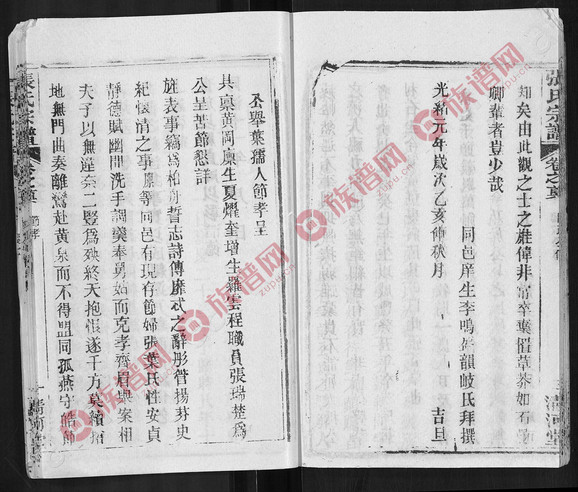 張氏宗譜
卷之負
知矣由此觀之士之雄偉非常卒棄擢草莽如石
卿輩者豈少哉
同邑庠生李鳴佩韻岐氏拜撰
光緒元年歲次乙亥仲秋月
吉旦
清河堂
公舉葉孺人節孝呈
具稟黃岡廩生夏燿奎增生羅雲程職員張瑞楚為
公呈苦節懇詳
旌表事竊為柏舟誓志詩傳靡忒之辭彤管揚芬史
紀懷清之事廩等同邑有現存節婦張葉氏性安貞
靜德賦幽閒洗手調羹奉舅姑而克孝齊眉舉案相
夫子以無違奈二豎為殃終天抱恨遂千方莫續搶
地無門曲奏離鸞赴黃泉而不得盟同孤燕守
張氏宗譜
卷之負
節孝
族谱网
zupu.cn